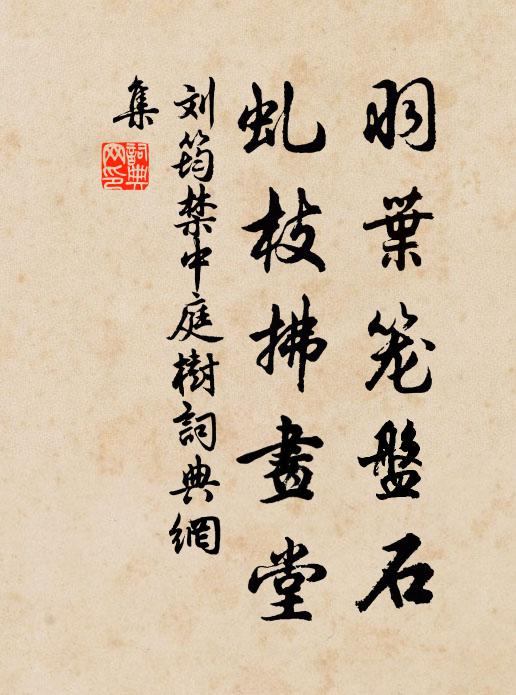 羽葉笼盤石
虬枝拂畫堂
刘筠禁中庭樹詞典網
集
詞典網印